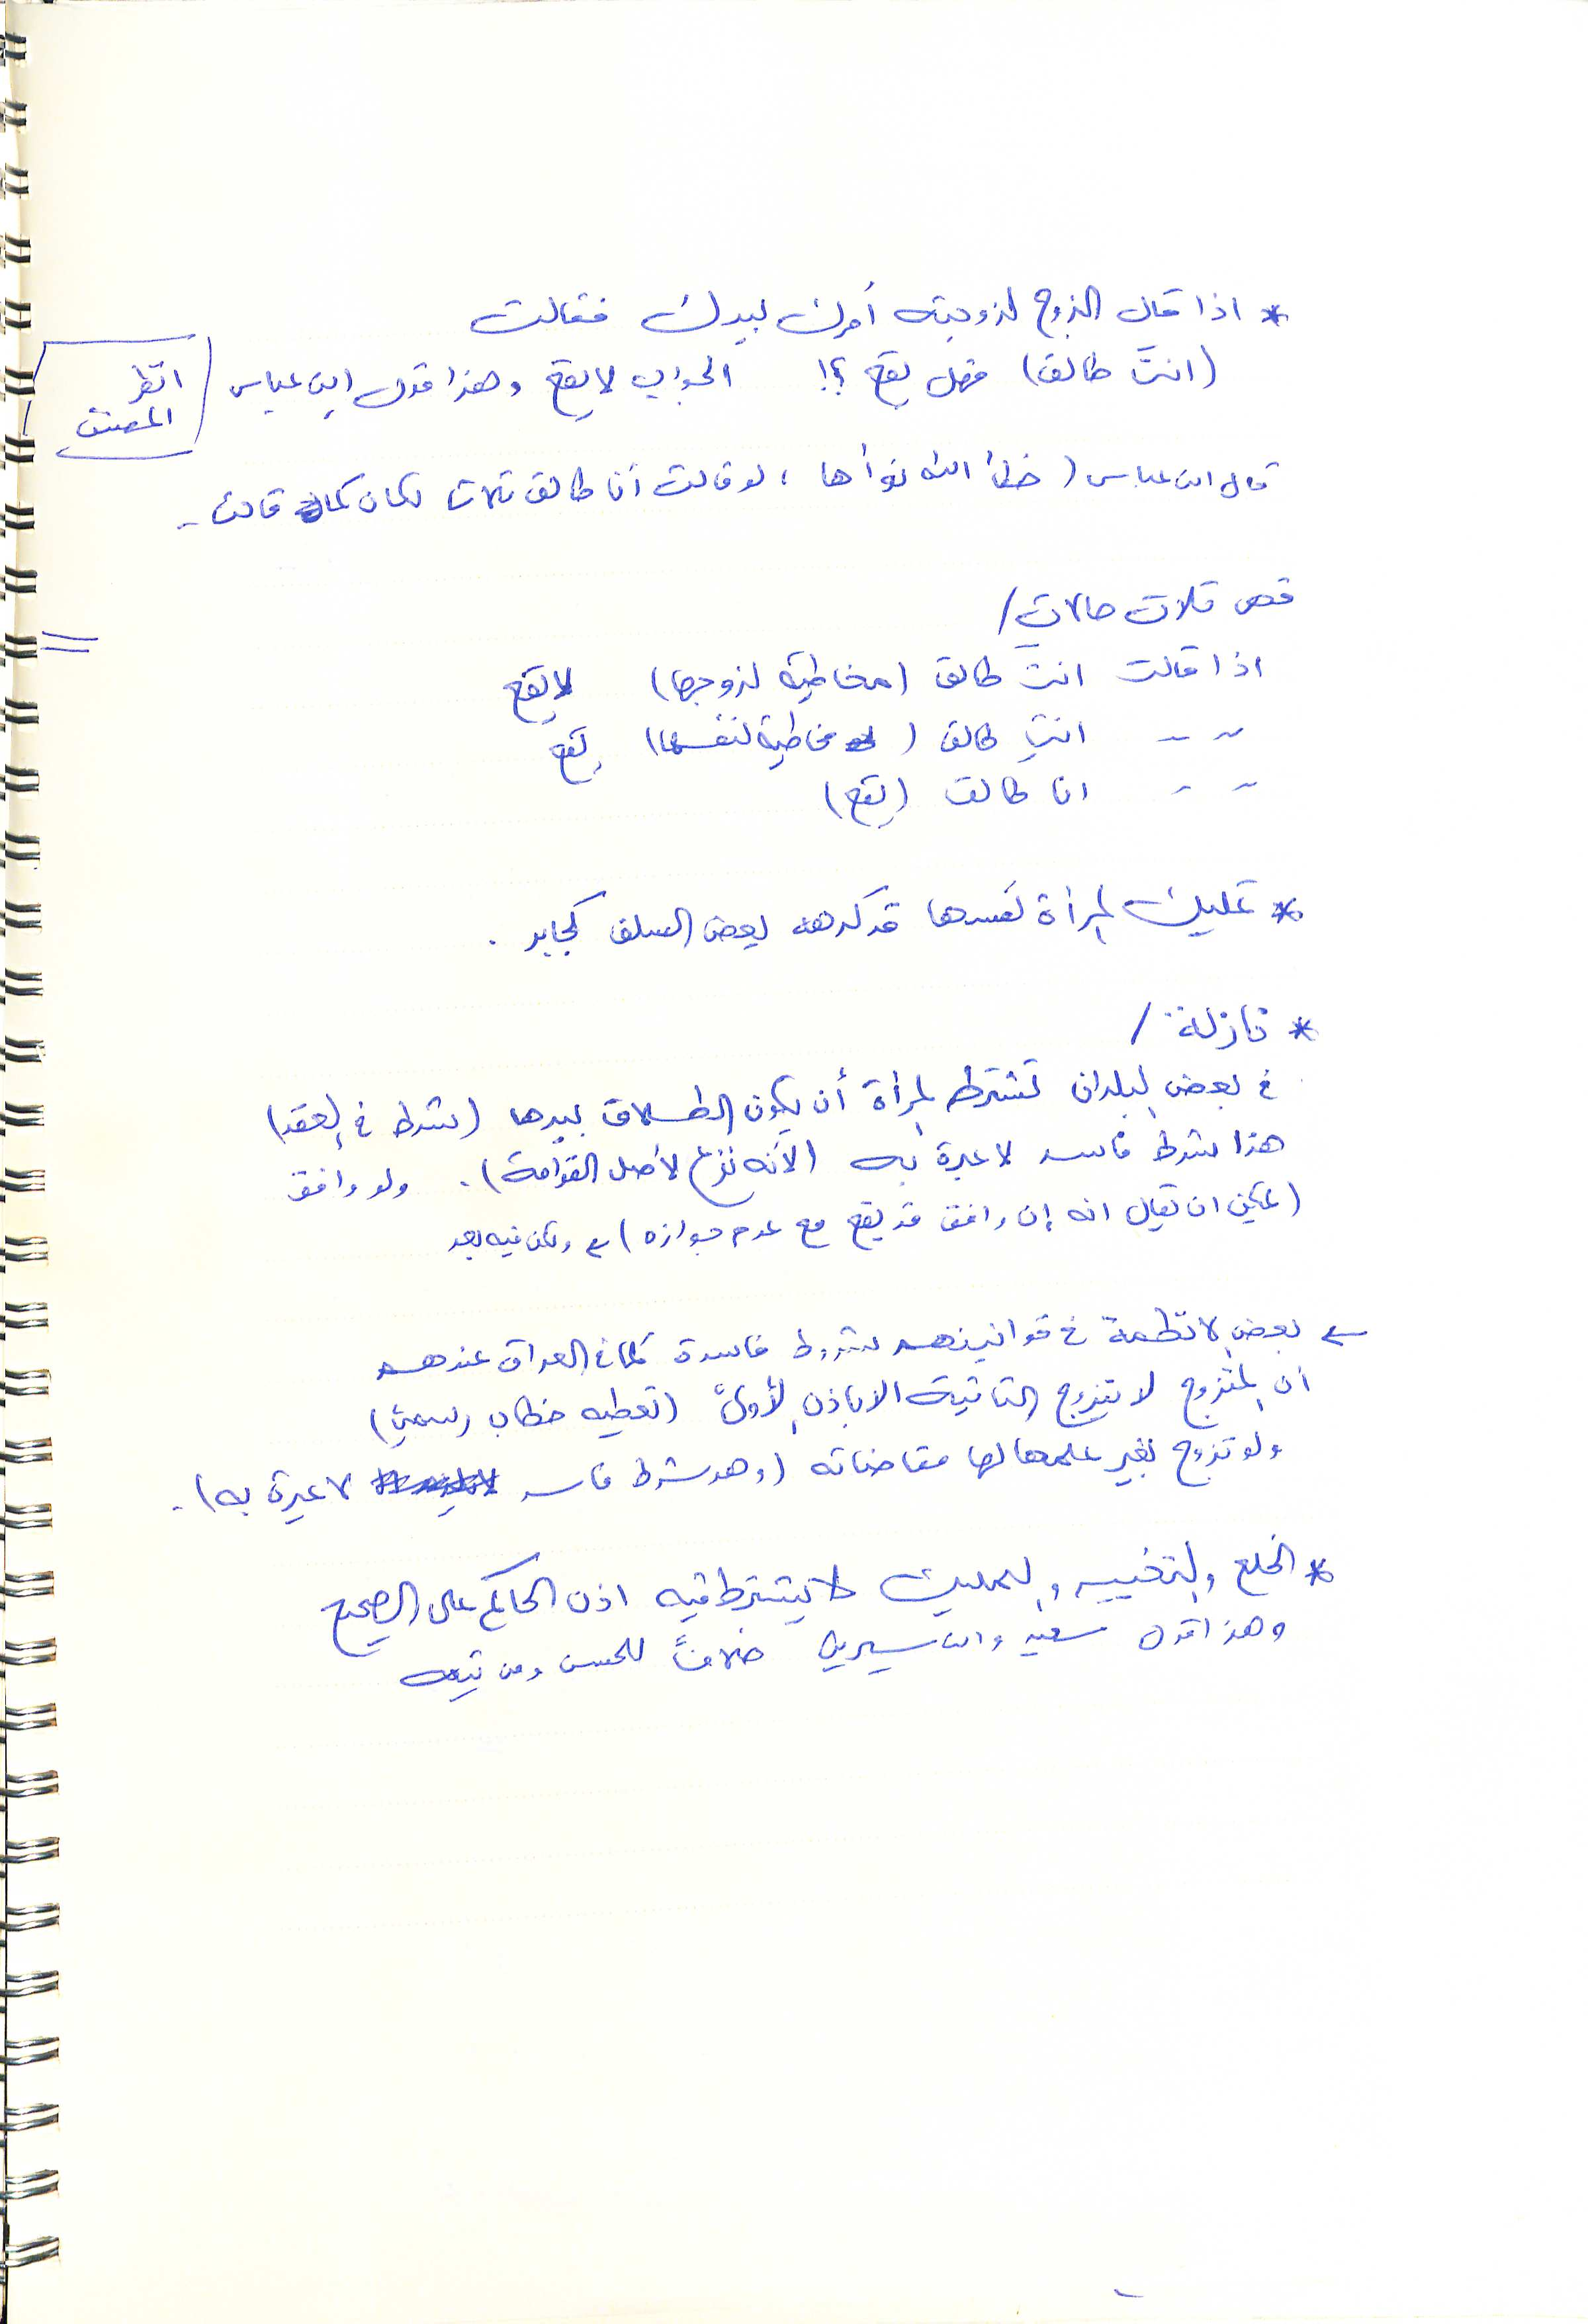 * اذا قال الزوج لزوجته أمرك بيدك فقالت
(انتَ طالق) فهل يقع ؟! الجواب لا يقع وهذا قول ابن عباس
انظر
المصنف
قال ابن عباس (خطأ الله نوأها ، لو قالت أنا طالق ثلاث لكان كما قالت -
فهي ثلاث حالات /
اذا قالت انتَ طالق (مخاطبة لزوجها) لا يقع
〃 〃 انتِ طالق (مخاطبة لنفسها) يقع
〃 〃 انا طالق (يقع)
* تمليك المرأة نفسها قد كرهه بعض السلف كجابر .
* نازلة /
في بعض البلدان تشترط المرأة أن يكون الطلاق بيدها (شرط في العقد)
هذا شرط فاسد لا عبرة به (لأنه نزع لأصل القوامة) . ولو وافق
(يمكن ان يقال انه إن وافق قد يقع مع عدم جوازه) ← ولكن فيه بعد
← بعض الانظمة في قوانينهم شروط فاسدة كما في العراق عندهم
ان المتزوج لا يتزوج الثانية الا باذن الأولى (تعطيه خطاب رسمي)
ولو تزوج بغير علمها لها مقاضاته (وهو شرط فاسد لا عبرة به) .
* الخلع والتخيير والتمليك لا يشترط فيه اذن الحاكم على الصحيح
وهذا قول سعيد وابن سيرين خلافاً للحسن ومن تبعه